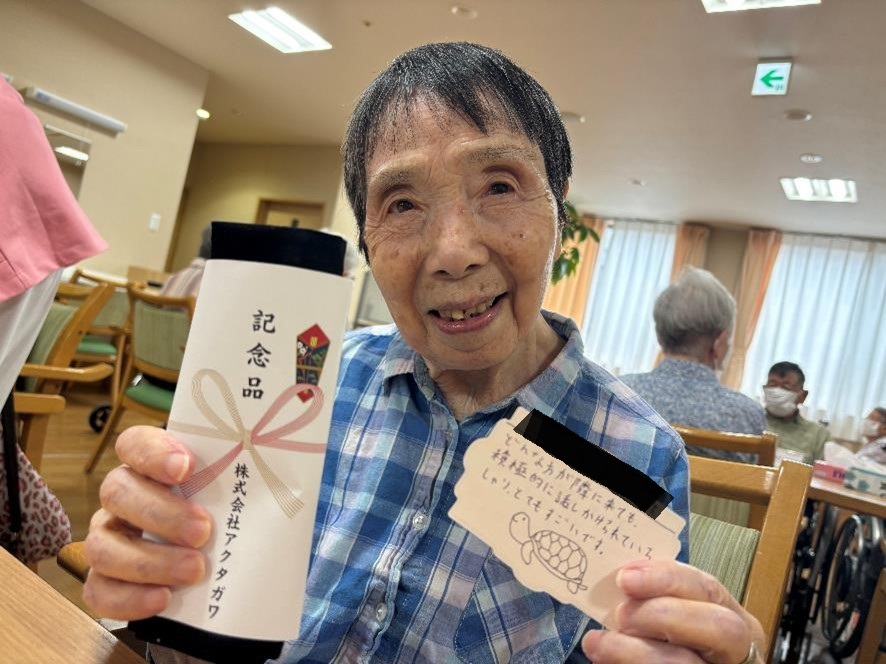 記念品
株式会社アクタガワ
どんな方が隣に来ても、
積極的に話しかけられている
しゃり、とてもすごいです。